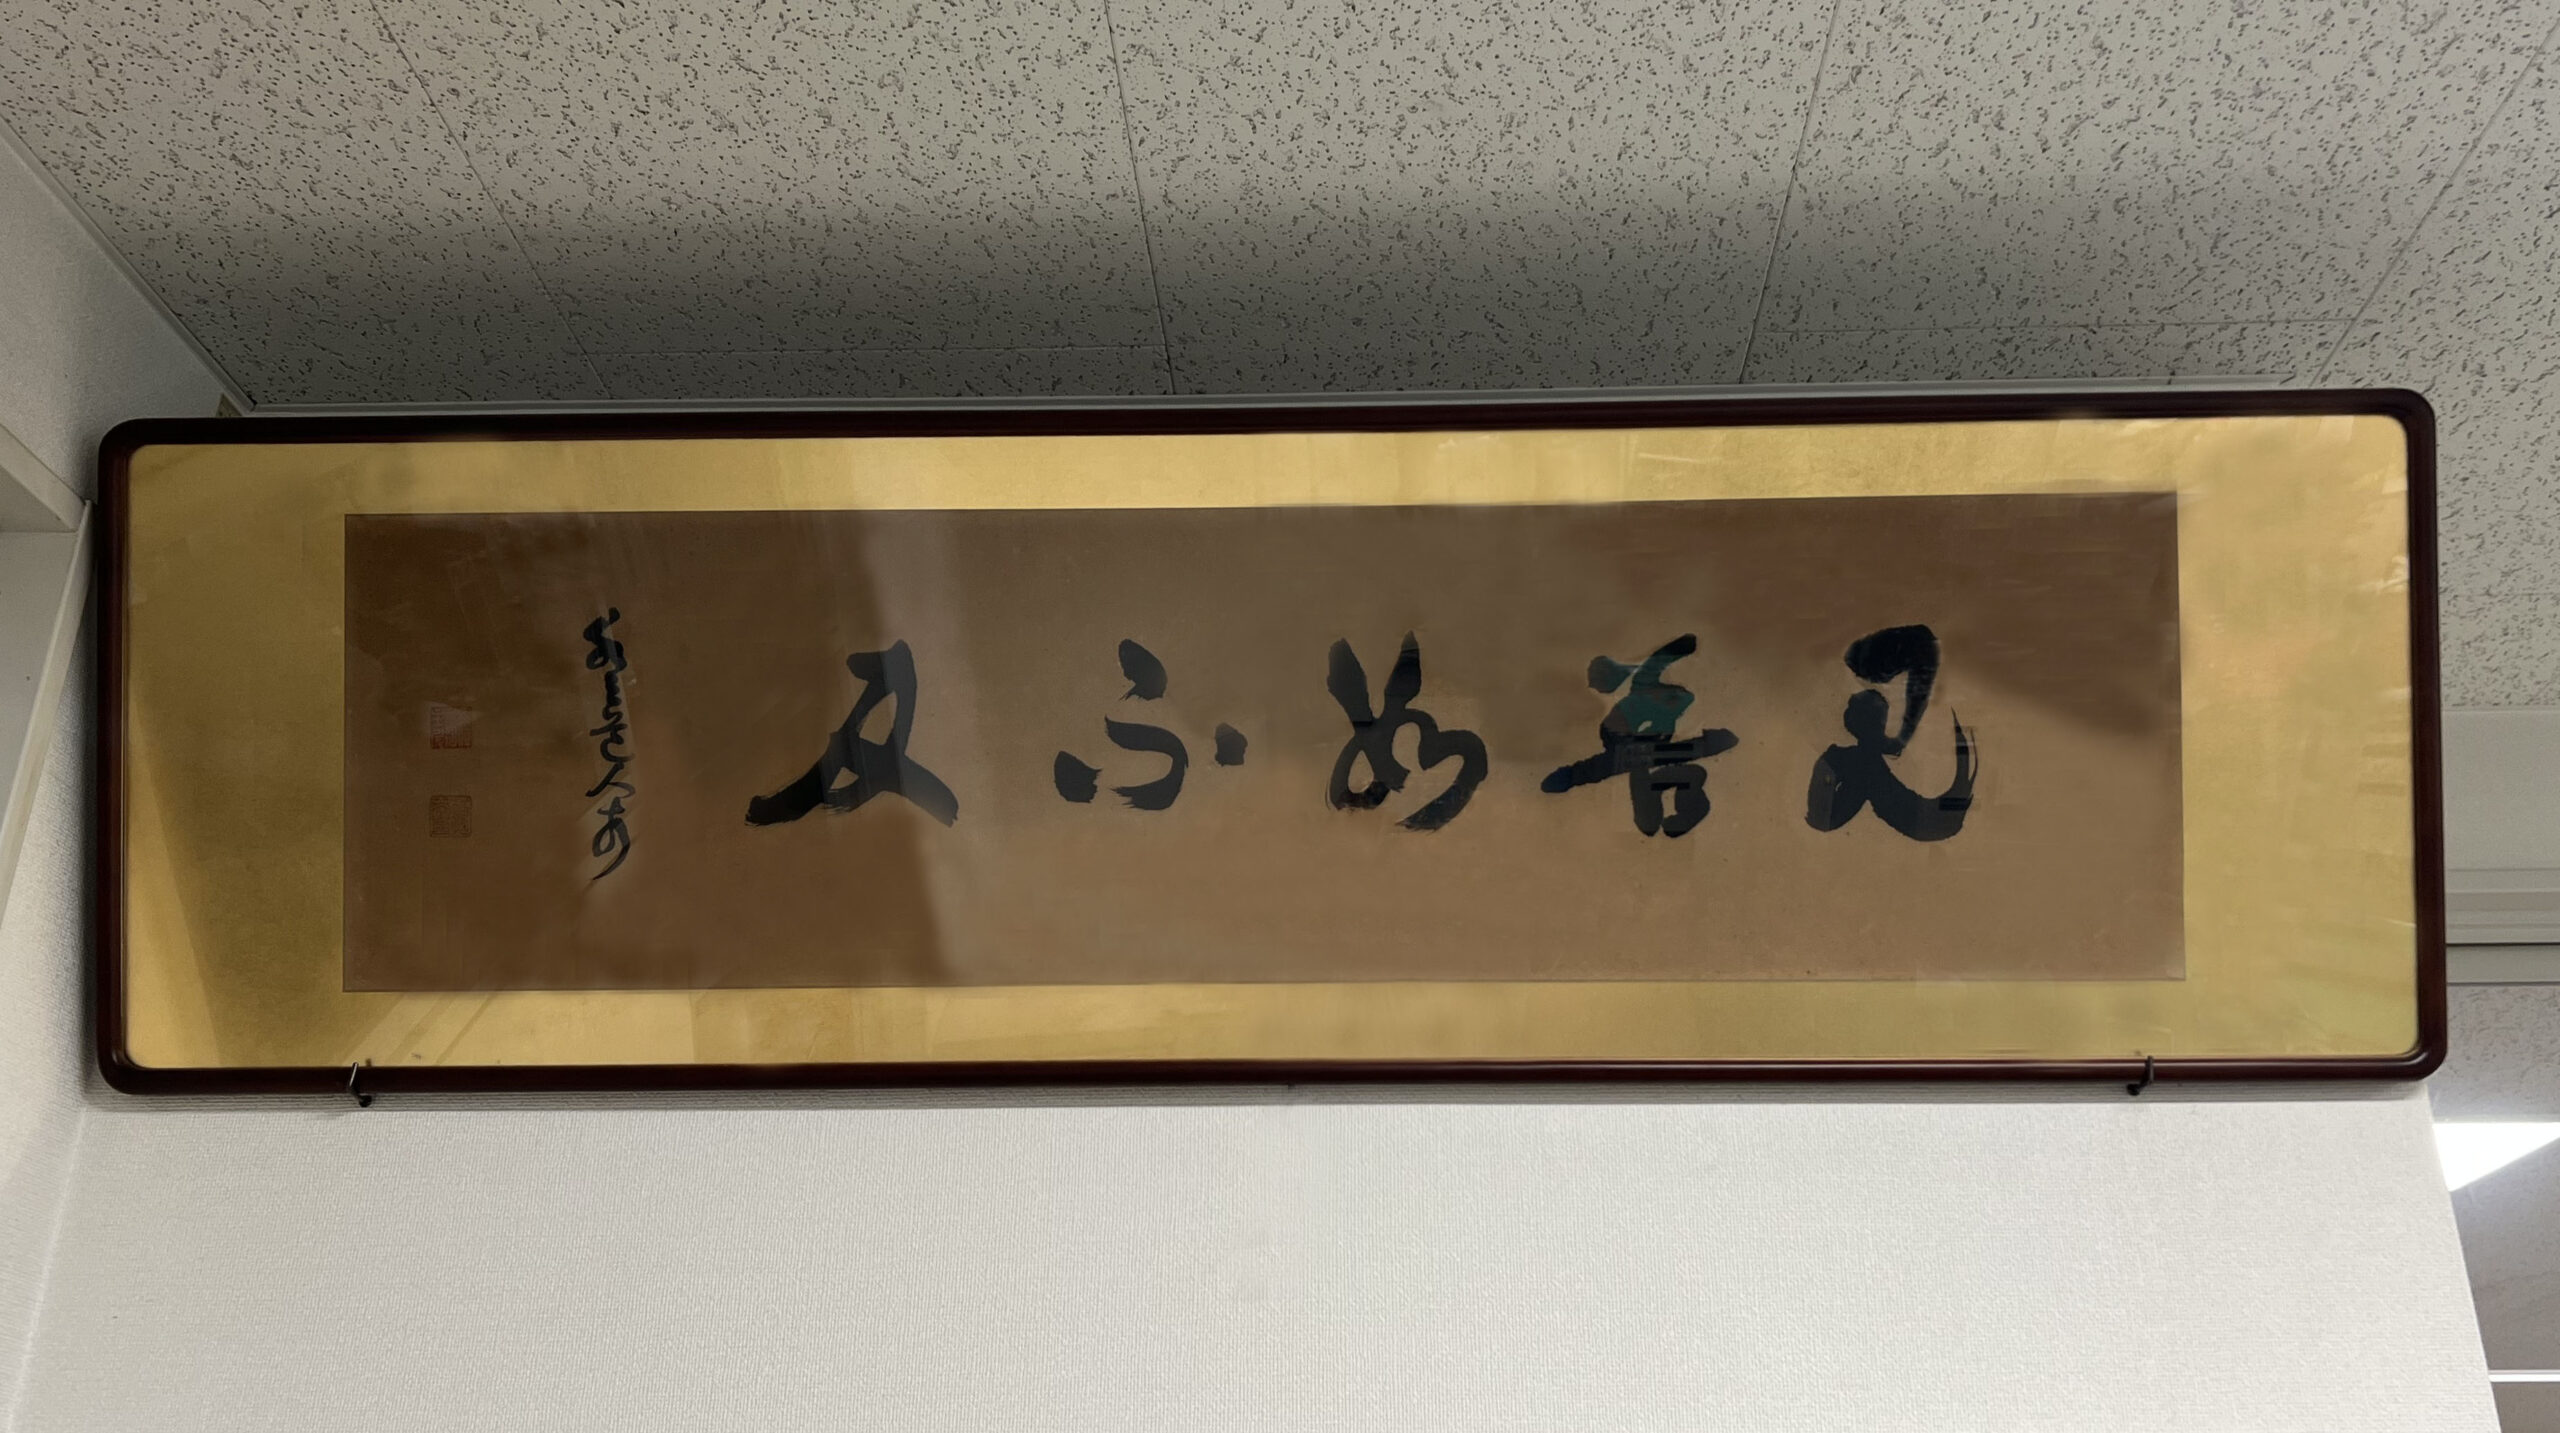 見善如不及